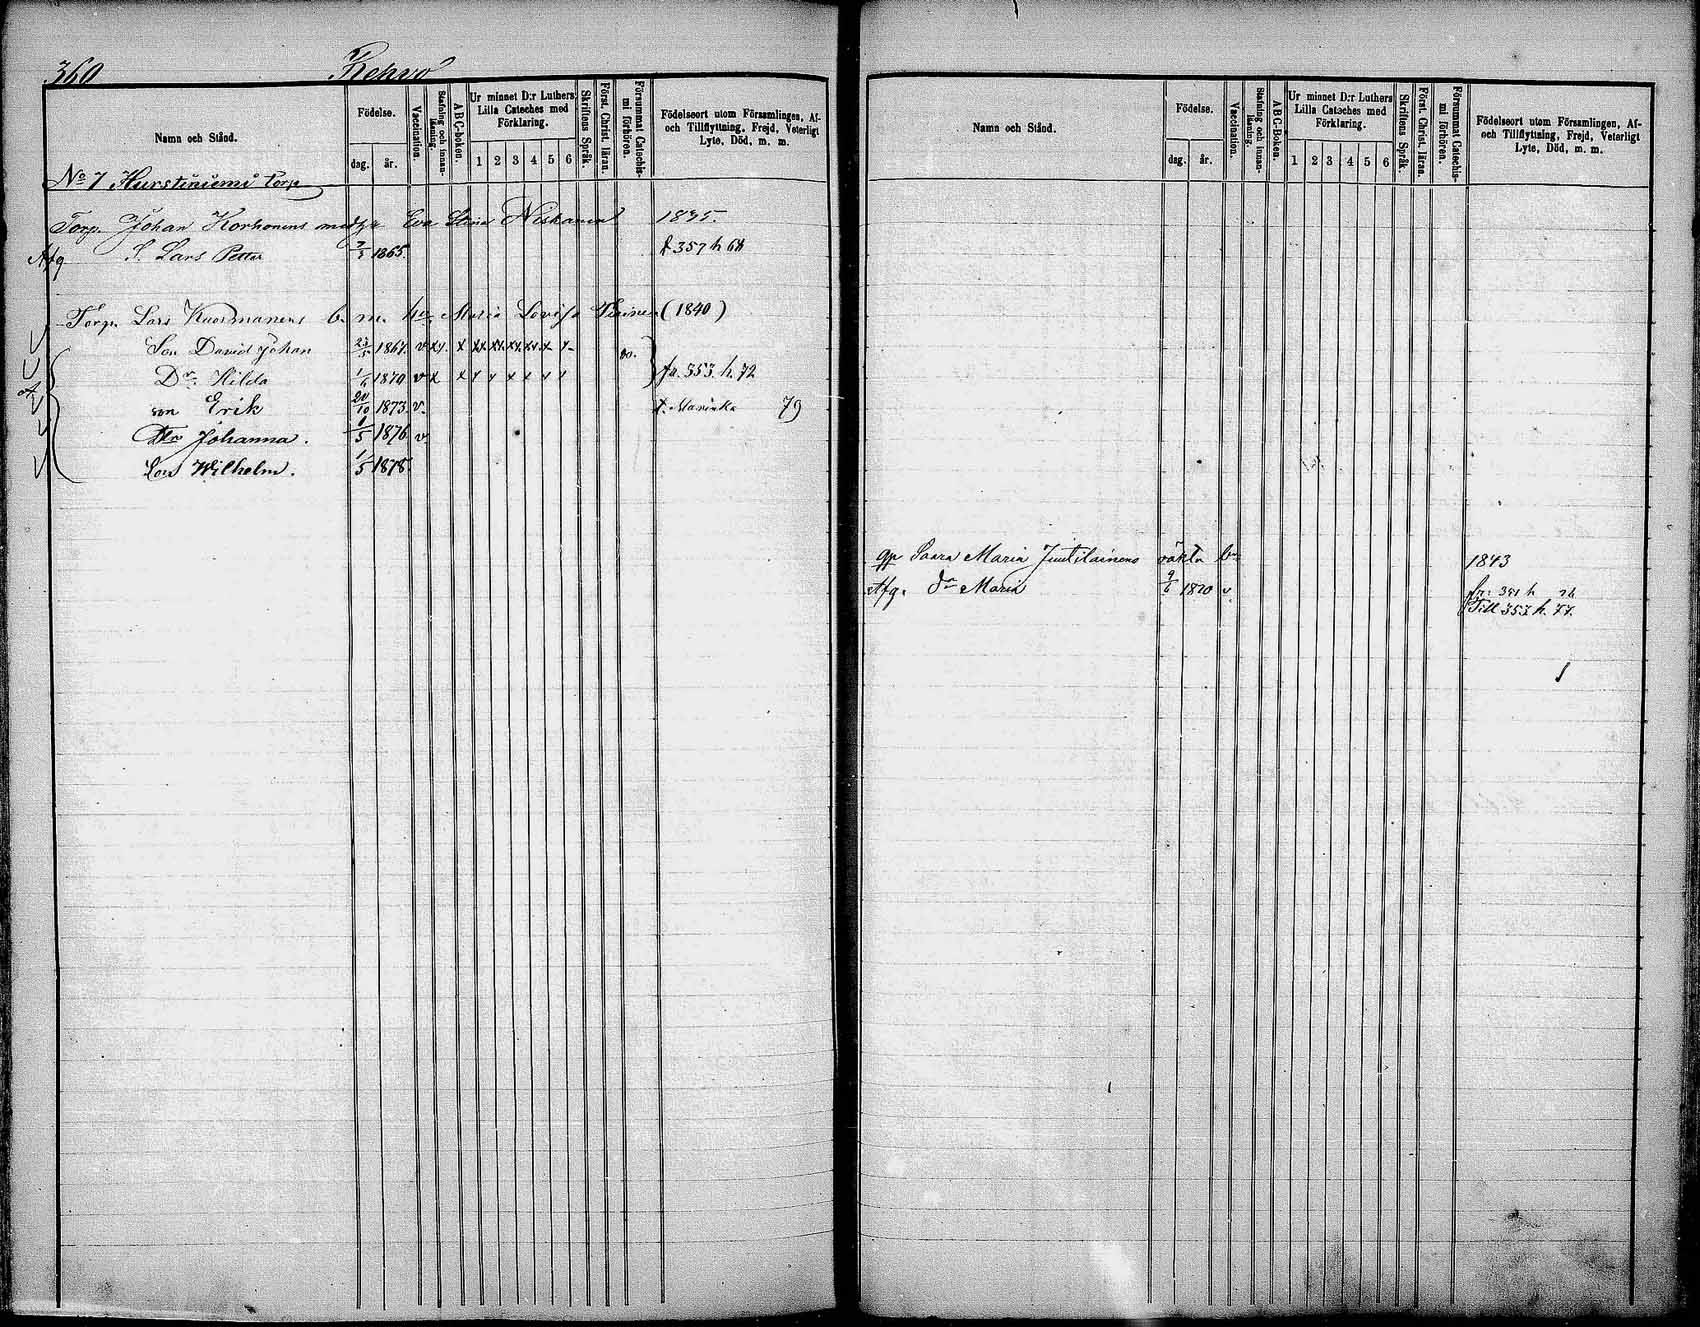 360 Rehvo
Namn och Stånd.
Födelse.
dag. år.
Vaccination.
Stafning och innan-läsning.
ABC-boken.
Ur minnet D:r Luthers Lilla Cateches med Förklaring.
1 2 3 4 5 6
Skriftens Språk.
Först. Christ. läran.
Försummat Catechis-mi förhören.
Födelseort utom Församlingen, Af- och Tillflyttning, Frejd, Veterligt Lyte, Död, m. m.
No 7 Hurstiniemi torp
Torp. Johan Korhonens Eva Stina Niskanen 1835.
Afg S. Lars Petter 1865. 357 h 68
Torp. Lars Kuosmanens b. m. hu. Maria Lovisa (1840)
Son David Johan 23/5 1867. v xx. x xx xx xx xx x x
Dr. Hilda 1870 v x x x x x x x fr. 353. h. 72
son Erik 20/10 1873. v. 79
Dtr Johanna. 1876 v
Son Wilhelm. 1/5 1878.
Namn och Stånd.
Födelse.
dag. år.
Vaccination.
Stafning och innan-läsning.
ABC-Boken.
Ur minnet D:r Luthers Lilla Cateches med Förklaring.
1 2 3 4 5 6
Skriftens Språk.
Först Christ. läran.
Försummat Catechis-mi förhören.
Födelseort utom Församlingen, Af- och Tillflyttning, Frejd, Veterligt Lyte, Död, m. m.
qp Saara Maria Juutilainens oäkta b. 1843
Afg. dr Maria 9/6 1870 v
Till 353 h. 77.